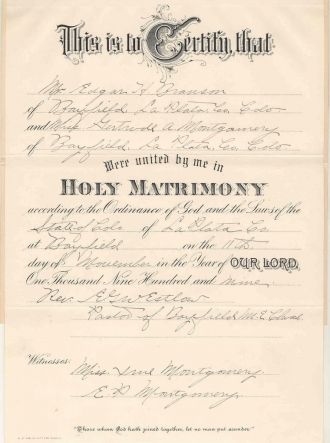 This is to Certify, that
Mr Edgar A Branson
of Bayfield La Plata Co Colo
and Miss Gertrude A Montgomery
of Bayfield La Plata, Co, Colo
Were united by me in
HOLY MATRIMONY
according to the Ordinance of God and the Laws of the
State of Colo of La Plata Co
at Bayfield on the 11th
day of November in the Year of OUR LORD,
One Thousand Nine Hundred and nine
Rev.
Pastor of Bayfield M.E.
Witnesses:
Miss Montgomery
E. P. Montgomery
"Those whom God hath joined together, let no man put asunder"